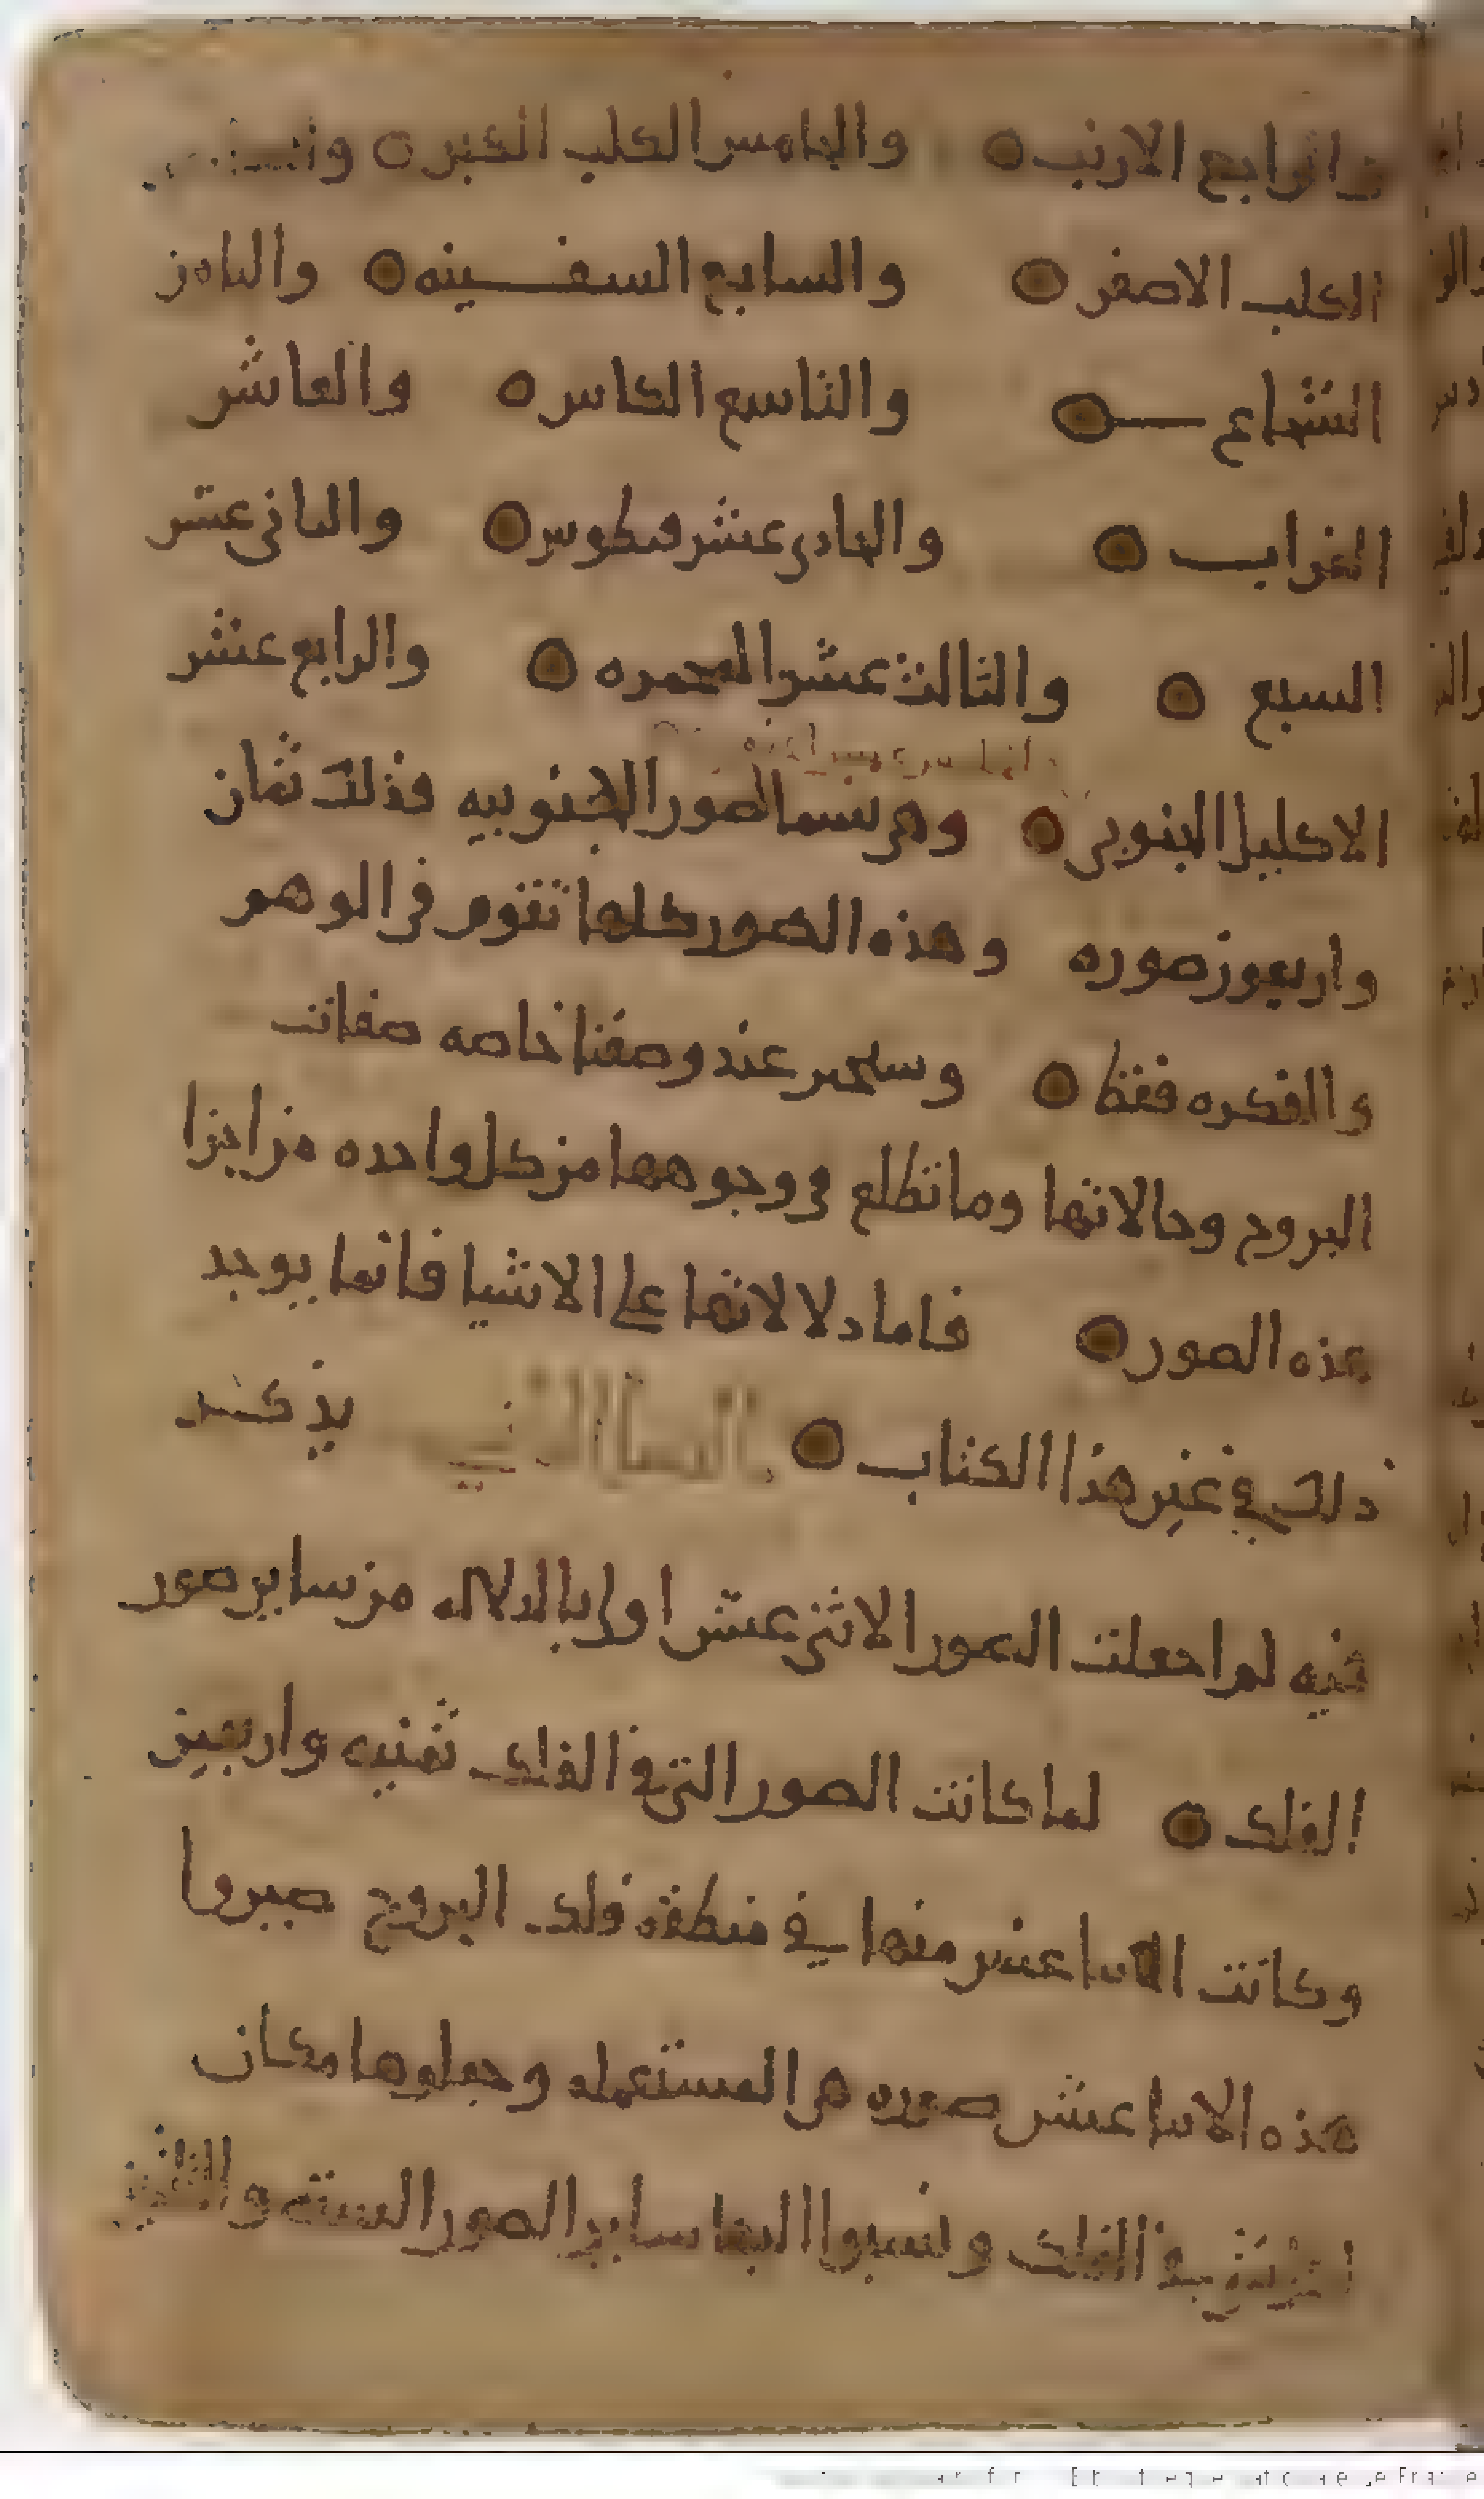 والرابع الارنب ه والخامس الكلب الكبير ه
الكلب الاصغر ه والسابع السفينه ه والثامن
الشجاع ه والتاسع الكاس ه والعاشر
الغراب ه والحادي عشر قنطورس ه والثاني عشر
السبع ه والثالث عشر المجمره ه والرابع عشر
الاكليل الجنوبي ه وهي تسما الصور الجنوبيه فذلك ثمان
واربعون صوره وهذه الصور كلها تتوهم في الوهم
والفكره فقط ه وسنخبر عند وصفنا خاصه صفات
البروج وحالاتها وما تطلع في وجوهها من كل واحده من اجزا
هذه الصور ه فاما دلالاتها على الاشيا فانما يوجد
ذلك في غير هذا الكتاب ه يذكر
فيه لم جعلت الصور الاثني عشر اولى بالدلاله من ساير صور
الفلك ه لما كانت الصور التي في الفلك ثمنيه واربعين
وكانت الاثنا عشر منها في منطقه فلك البروج صيروا
هذه الاثنا عشر صوره هي المستعمله وجعلوها مكان
في الفلك ونسبوا اليها ساير الصور السته والثلثين